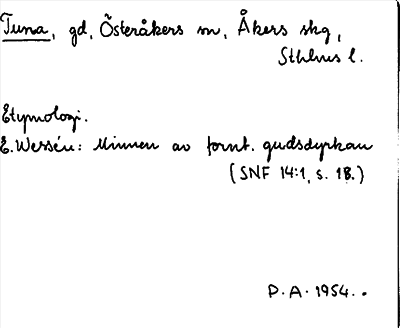 Tuna, gd, Österåkers sn, Åkers skg,
Sthlms l.
Etymologi.
E. Wessén: Minnen av fornt. gudsdyrkan
(SNF 14:1, s. 18.)
P.A. 1954.